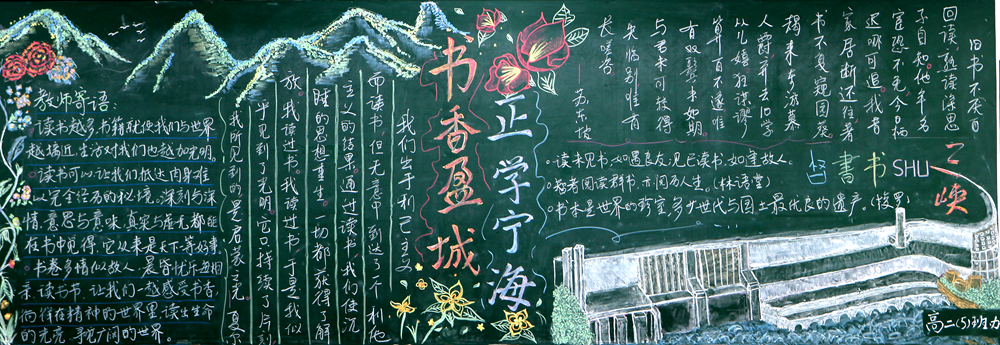 教师寄语:
·读书越多,书籍就使我们与世界
越接近,生活对我们也越加光明。
·读书可以让我们抵达肉身难
以完全经历的秘境。深刻与深
情、意思与意味、真实与虚无都能
在书中见得,它从来是天下一等好事。
·书卷多情似故人,晨昏忧乐每相
亲。读书节,让我们一起感受书香,
徜徉在精神的世界里,读出生命
的光亮,寻见广阔的世界。
我们出于利己主义
而读书,但无意中到达了个利他
主义的结果。通过读书,我们使沉
睡的思想重生。一切都获得了解
放。我读过书。我读过书,于是我似
乎见到了光明,它只持续了片刻
我所见到的是启蒙之光。夏尔
正学宁海
书香盈城
旧书不厌百
回读,熟读深思
子自知。他年名
宦恐不免,今日栖
迟哪可追。我昔
家居断还往,著
书不复窥园葵。
朅来东游慕
人爵,弃去旧学
从儿嬉。狂谋谬
算百不遂,惟
有双鬓来如期。
与君未可较得
失,临别唯有
长嗟咨。
苏东坡
·读未见书,如遇良友;见已读书,如逢故人。
阅读群书,亦阅历人生。(林语堂)
·书本是世界的珍宝,多少世代与国土最优良的遗产。(梭罗)
書 书 SHU
峡
高二(5)班办